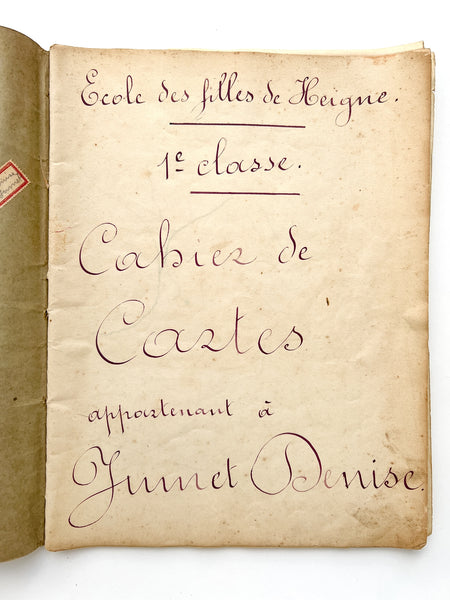 Ecole des filles de Heigne.
1e classe.
Cahier de
Cartes
appartenant à
Jumet Denise.